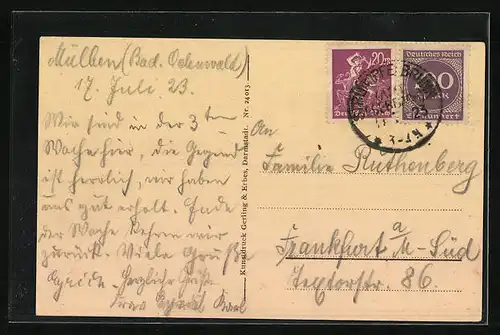 Mülben (Bad. Odenwald)
17. Juli 23.
Wir sind in der 3ten
Woche hier, die Gegend
ist herrlich, wir haben
uns gut erholt. Ende
der Woche kehren wir
zurück. Viele Grüße
Herzliche Grüße
Frau Karl
Kunstdruck Gerling & Erbes, Darmstadt. Nr. 24013.
20
Deutsches Reich
MARK
An
Familie Ruthenberg
Frankfurt a M-Süd
Textorstr. 86.